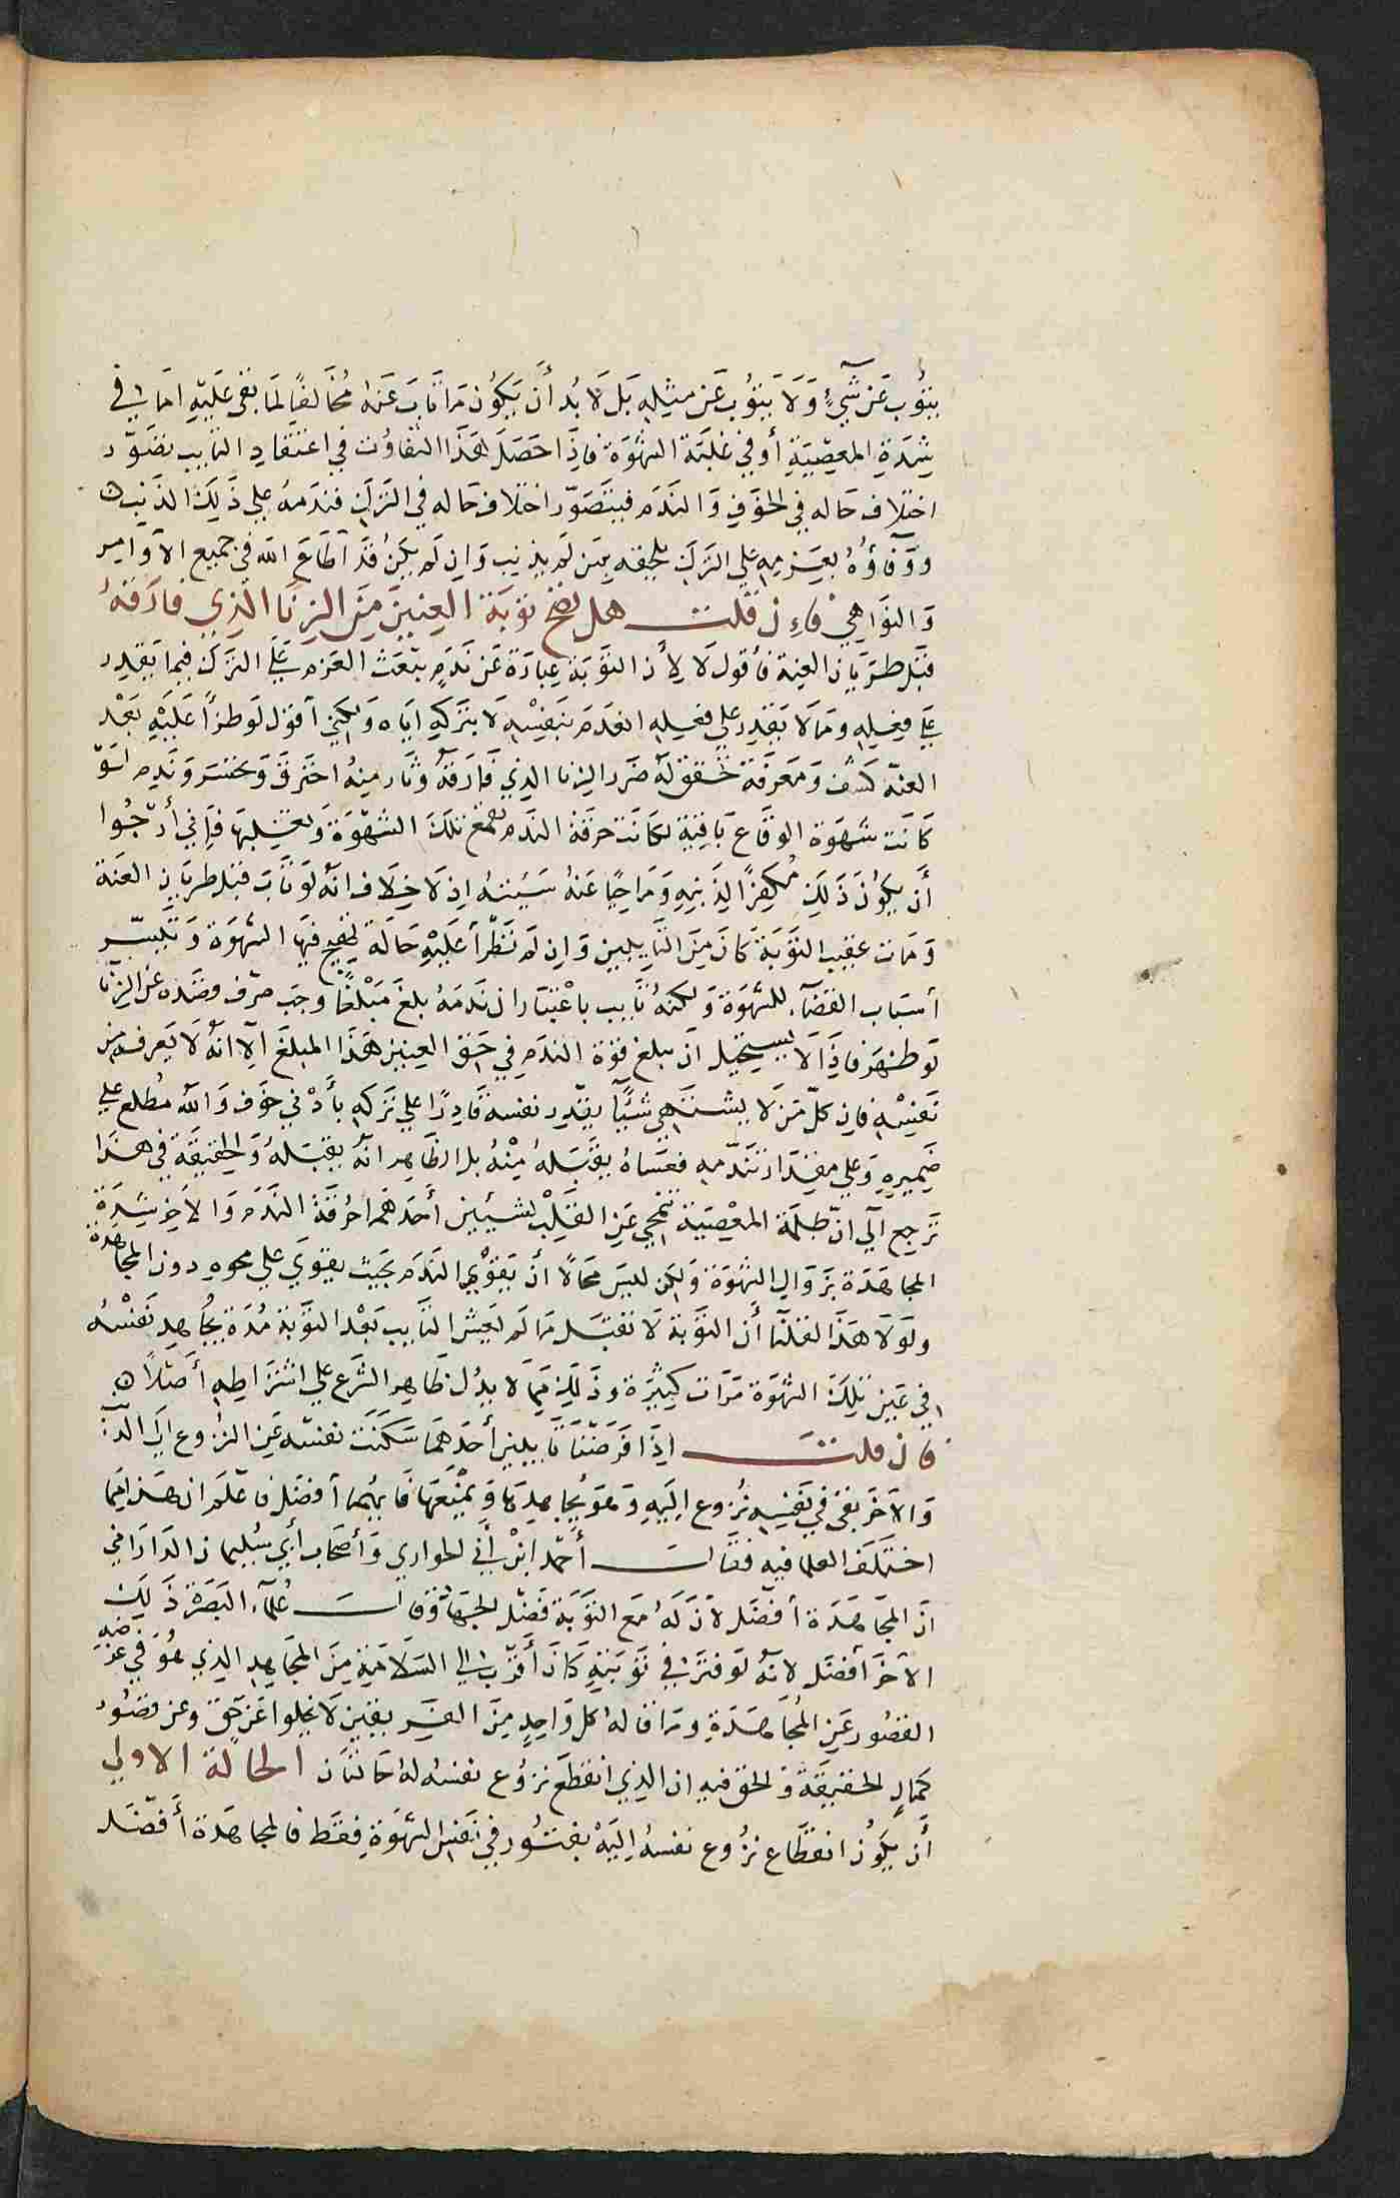 يتوب عن شيء ولا يتوب عن مثله بل لا بد أن يكون ما تاب عنه مخالفا لما بقي عليه اما في
شدة المعصية أو في غلبة الشهوة فاذا حصل هذا التفاوت في اعتقاد التايب تصور
اختلاف حاله في الخوف والندم فيتصور اختلاف حاله في الترك فندمه على ذلك الذنب
ووفاؤه بعزمه على الترك يلحقه بمن لم يذنب وان لم يكن قد أطاع الله في جميع الأوامر
والنواهي فإن قلت هل تصح توبة العنين من الزنا الذي قارفه
قبل طريان العنة فأقول لا لأن التوبة عبارة عن ندم يبعث العزم على الترك فيما يقدر
على فعله وما لا يقدر على فعله انعدم بنفسه لا بتركه اياه ولكني أقول لو طرأ عليه بعد
العنة كشف ومعرفة تحقق له ضرر الزنا الذي قارفه وثار منه احترق وتحسر وندم
كانت شهوة الوقاع باقية لكانت حرقة الندم تقمع تلك الشهوة وتغلبها فإني أرجوا
أن يكون ذلك مكفرا لذنبه وماحيا عنه سيئته اذ لا خلاف انه لو تاب قبل طريان العنة
ومات عقيب التوبة كان من التايبين وان لم تطرأ عليه حالة تهيج فيها الشهوة وتتيسر
أسباب القضاء للشهوة ولكنه تايب باعتبار ان ندمه بلغ مبلغا وجب صرف قصده عن الزنا
لو ظهر فاذا لا يستحيل ان يبلغ قوة الندم في حق العنين هذا المبلغ الا انه لا يعرفه من
نفسه فان كل من لا يشتهي شيئا يقدر نفسه قادرا على تركه بأدنى خوف والله مطلع على
ضميره وعلى مقدار تندمه فعساه يقبله منه بل الظاهر انه يقبله والحقيقة في هذا
ترجع الى ان ظلمة المعصية تنمحي عن القلب بشيئين أحدهما حرقة الندم والاخر شدة
المجاهدة بزوال الشهوة ولكن ليس محالا أن يقوى الندم بحيث يقوى على محوه دون المجاهدة
ولولا هذا لقلنا أن التوبة لا تقبل ما لم يعش التايب بعد التوبة مدة يجاهد نفسه
في عين تلك الشهوة مرات كثيرة وذلك مما لا يدل ظاهر الشرع على اشتراطه أصلا
فان قلت اذا فرضنا تايبين أحدهما سكنت نفسه عن النزوع الى الذنب
والاخر بقي في نفسه نزوع اليه وهو يجاهدها ويمنعها فايهما أفضل فاعلم ان هذا مما
اختلف العلما فيه فقال أحمد ابن أبي الحواري وأصحاب أبي سليمان الداراني
ان المجاهدة أفضل لان له مع التوبة فضل الجهاد وقال علماء البصرة ذلك
الاخر أفضل لانه لو فتر في توبته كان أقرب الى السلامة من المجاهد الذي هو في عرضه
القصور عن المجاهدة وما قاله كل واحد من الفريقين لا يخلوا عن حق وعن قصور
كمال الحقيقة والحق فيه ان الذي انقطع نزوع نفسه له حالتان الحالة الاولى
أن يكون انقطاع نزوع نفسه اليه بفتور في نفس الشهوة فقط فالمجاهدة أفضل